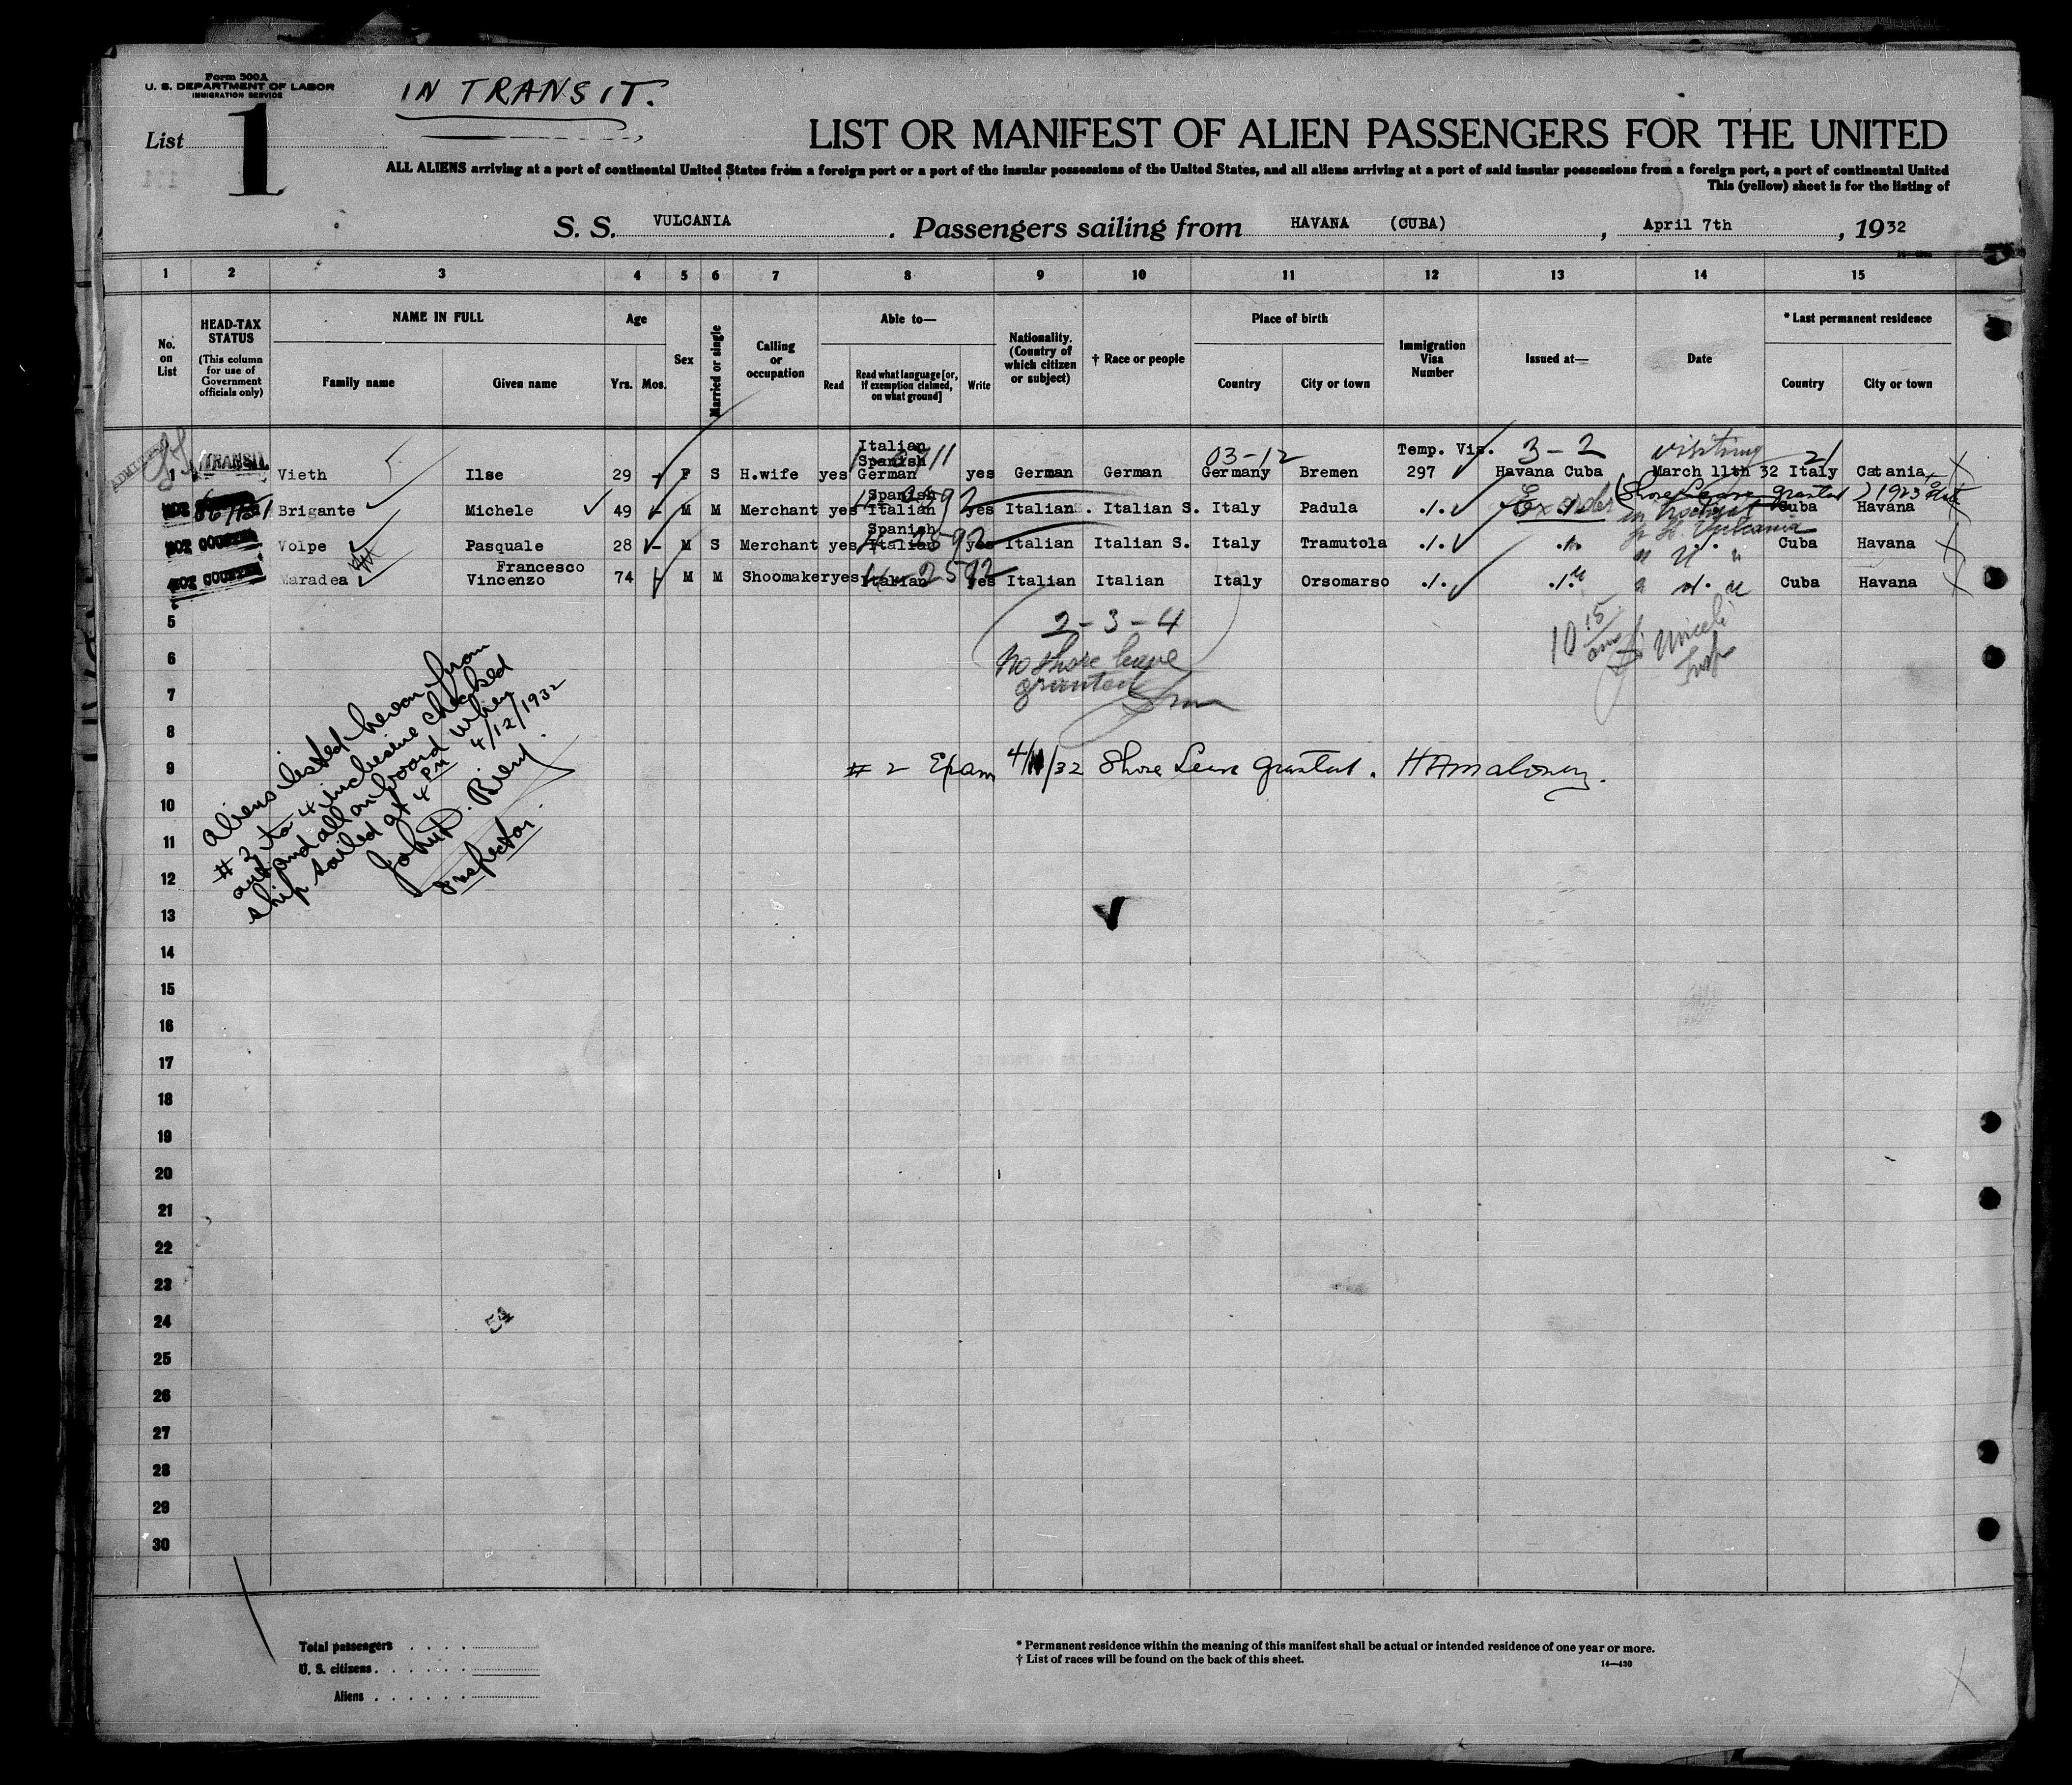 Form 500A
U. S. DEPARTMENT OF LABOR
IMMIGRATION SERVICE
IN TRANSIT.
List 1
LIST OR MANIFEST OF ALIEN PASSENGERS FOR THE UNITED
ALL ALIENS arriving at a port of continental United States from a foreign port or a port of the insular possessions of the United States, and all aliens arriving at a port of said insular possessions from a foreign port, a port of continental United
This (yellow) sheet is for the listing of
S. S. VULCANIA. Passengers sailing from HAVANA (CUBA), April 7th, 1932
1 2 3 4 5 6 7 8 9 10 11 12 13 14 15
No. on List
HEAD-TAX STATUS
(This column for use of Government officials only)
NAME IN FULL
Family name Given name
Age
Yrs. Mos.
Sex
Married or single
Calling or occupation
Able to—
Read
Read what language [or, if exemption claimed, on what ground]
Write
Nationality. (Country of which citizen or subject)
† Race or people
Place of birth
Country City or town
Immigration Visa Number
Issued at—
Date
* Last permanent residence
Country City or town
Italian 03-12 Temp. Vis. 3-2 visiting 21
Spanish
1 TRANSIT Vieth Ilse 29 - F S H.wife yes German yes German German Germany Bremen 297 Havana Cuba March 11th 32 Italy Catania
Spanish
Shore Leave granted
Brigante Michele 49 - M M Merchant yes Italian yes Italian S. Italian S. Italy Padula ./. Cuba Havana
Spanish
NOT COUNTED Volpe Pasquale 28 - M S Merchant yes Italian yes Italian Italian S. Italy Tramutola ./. Cuba Havana
Francesco
NOT COUNTED Maradea Vincenzo 74 - M M Shoomaker yes Italian yes Italian Italian Italy Orsomarso ./. ./. Cuba Havana
5
2-3-4
10 15 am
6
No shore leave
7
granted
8
9
#2 4/11/32 Shore Leave granted. HAMaloney.
Aliens listed hereon from
#2 to 4 inclusive checked
and all on board when
ship sailed at 4 PM 4/12/1932
John
Inspector.
10
11
12
13
14
15
16
17
18
19
20
21
22
23
24
25
26
27
28
29
30
Total passengers
U. S. citizens
Aliens
* Permanent residence within the meaning of this manifest shall be actual or intended residence of one year or more.
† List of races will be found on the back of this sheet.
14—430